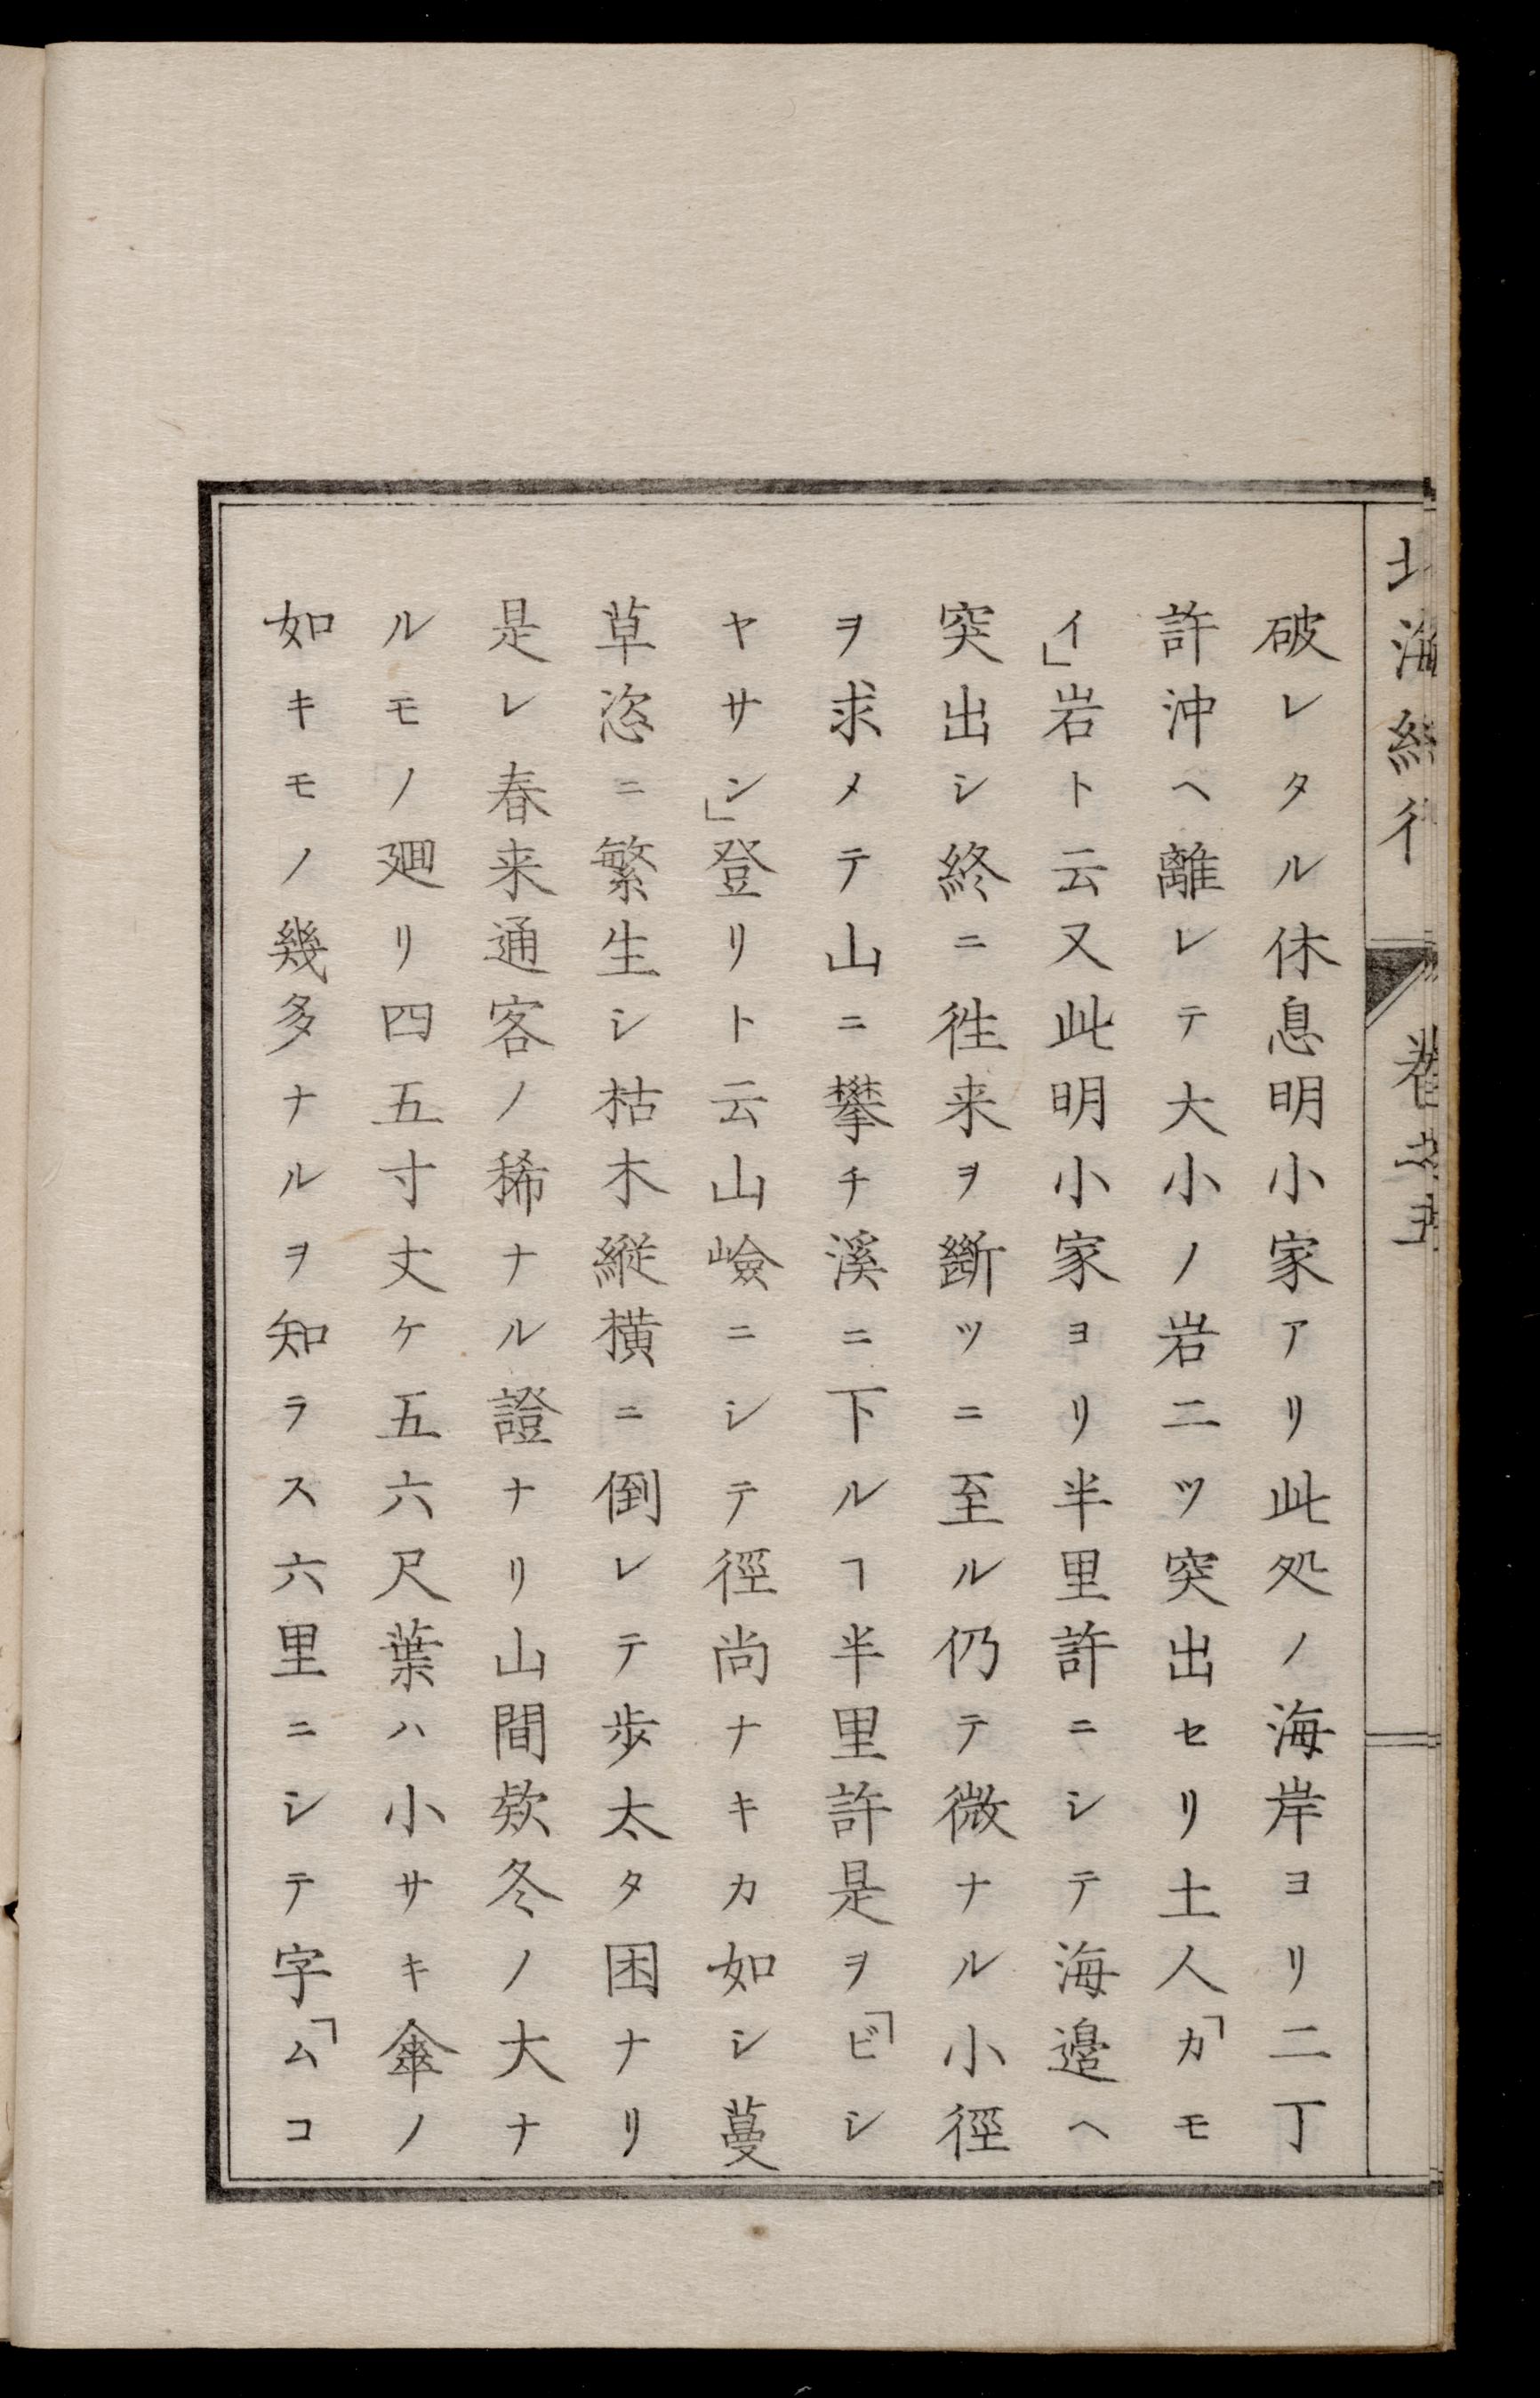 北海紀行 卷之五
破レタル休息明小家アリ此処ノ海岸ヨリ二丁
許沖ヘ離レテ大小ノ岩二ツ突出セリ土人「カモ
イ」岩ト云又此明小家ヨリ半里許ニシテ海邉ヘ
突出シ終ニ徃来ヲ斷ツニ至ル仍テ微ナル小徑
ヲ求メテ山ニ攀チ溪ニ下ルヿ半里許是ヲ「ビシ
ヤサン」登リト云山嶮ニシテ徑尚ナキカ如シ蔓
草恣ニ繁生シ枯木縱橫ニ倒レテ歩太タ困ナリ
是レ春来通客ノ稀ナル證ナリ山間欵冬ノ大ナ
ルモノ廻リ四五寸丈ケ五六尺葉ハ小サキ傘ノ
如キモノ幾多ナルヲ知ラス六里ニシテ字「ムコ